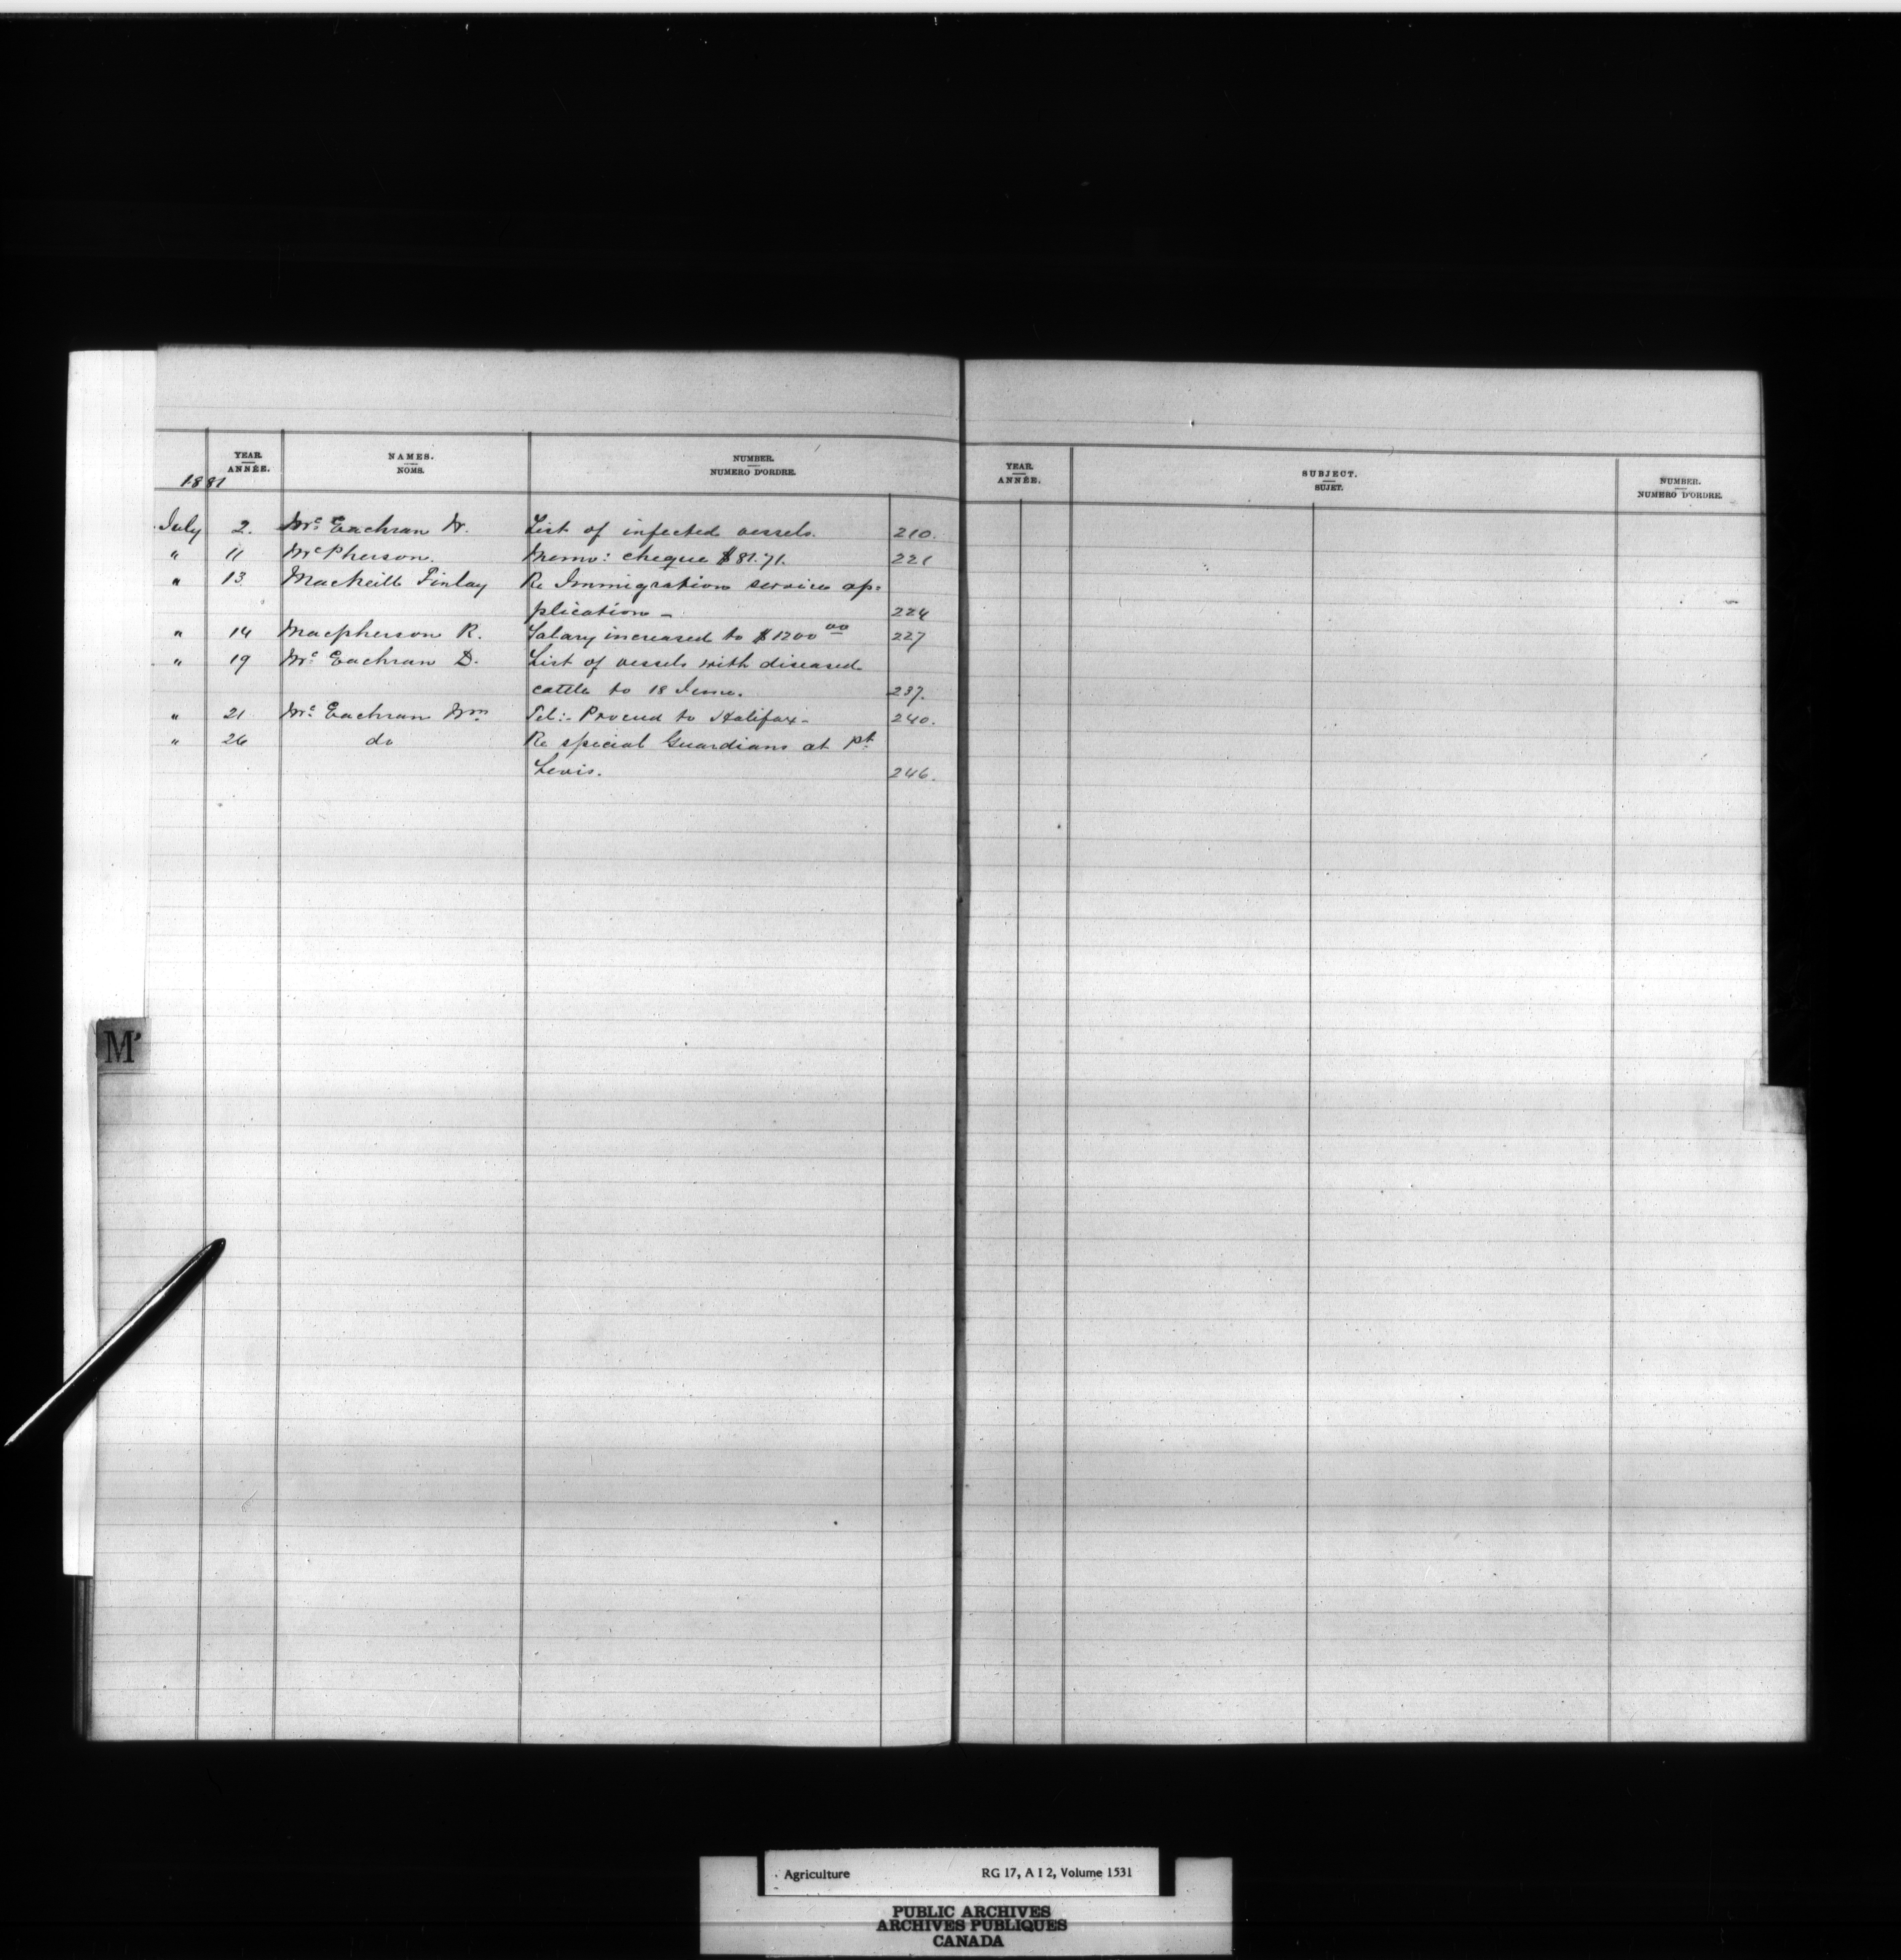 YEAR. ANNÉE. NAMES. NOMS. NUMBER. NUMERO D'ORDRE.
1881
July 2. McEachran W. List of infected vessels. 210.
" 11 McPherson. Memo: cheque $81.71. 221
" 13 Macneill Finlay Re Immigration service ap=
plication – 224
" 14 Macpherson R. Salary increased to $1200 00 227
" 19 McEachran D. List of vessels with diseased
cattle to 18 June. 237.
" 21 McEachran Wm Tel:- Proceed to Halifax – 240.
" 26 do Re special Guardians at Pt.
Levis. 246.
Mc
YEAR. ANNÉE. SUBJECT. SUJET. NUMBER. NUMERO D'ORDRE.
Agriculture RG 17, A I 2, Volume 1531
PUBLIC ARCHIVES
ARCHIVES PUBLIQUES
CANADA